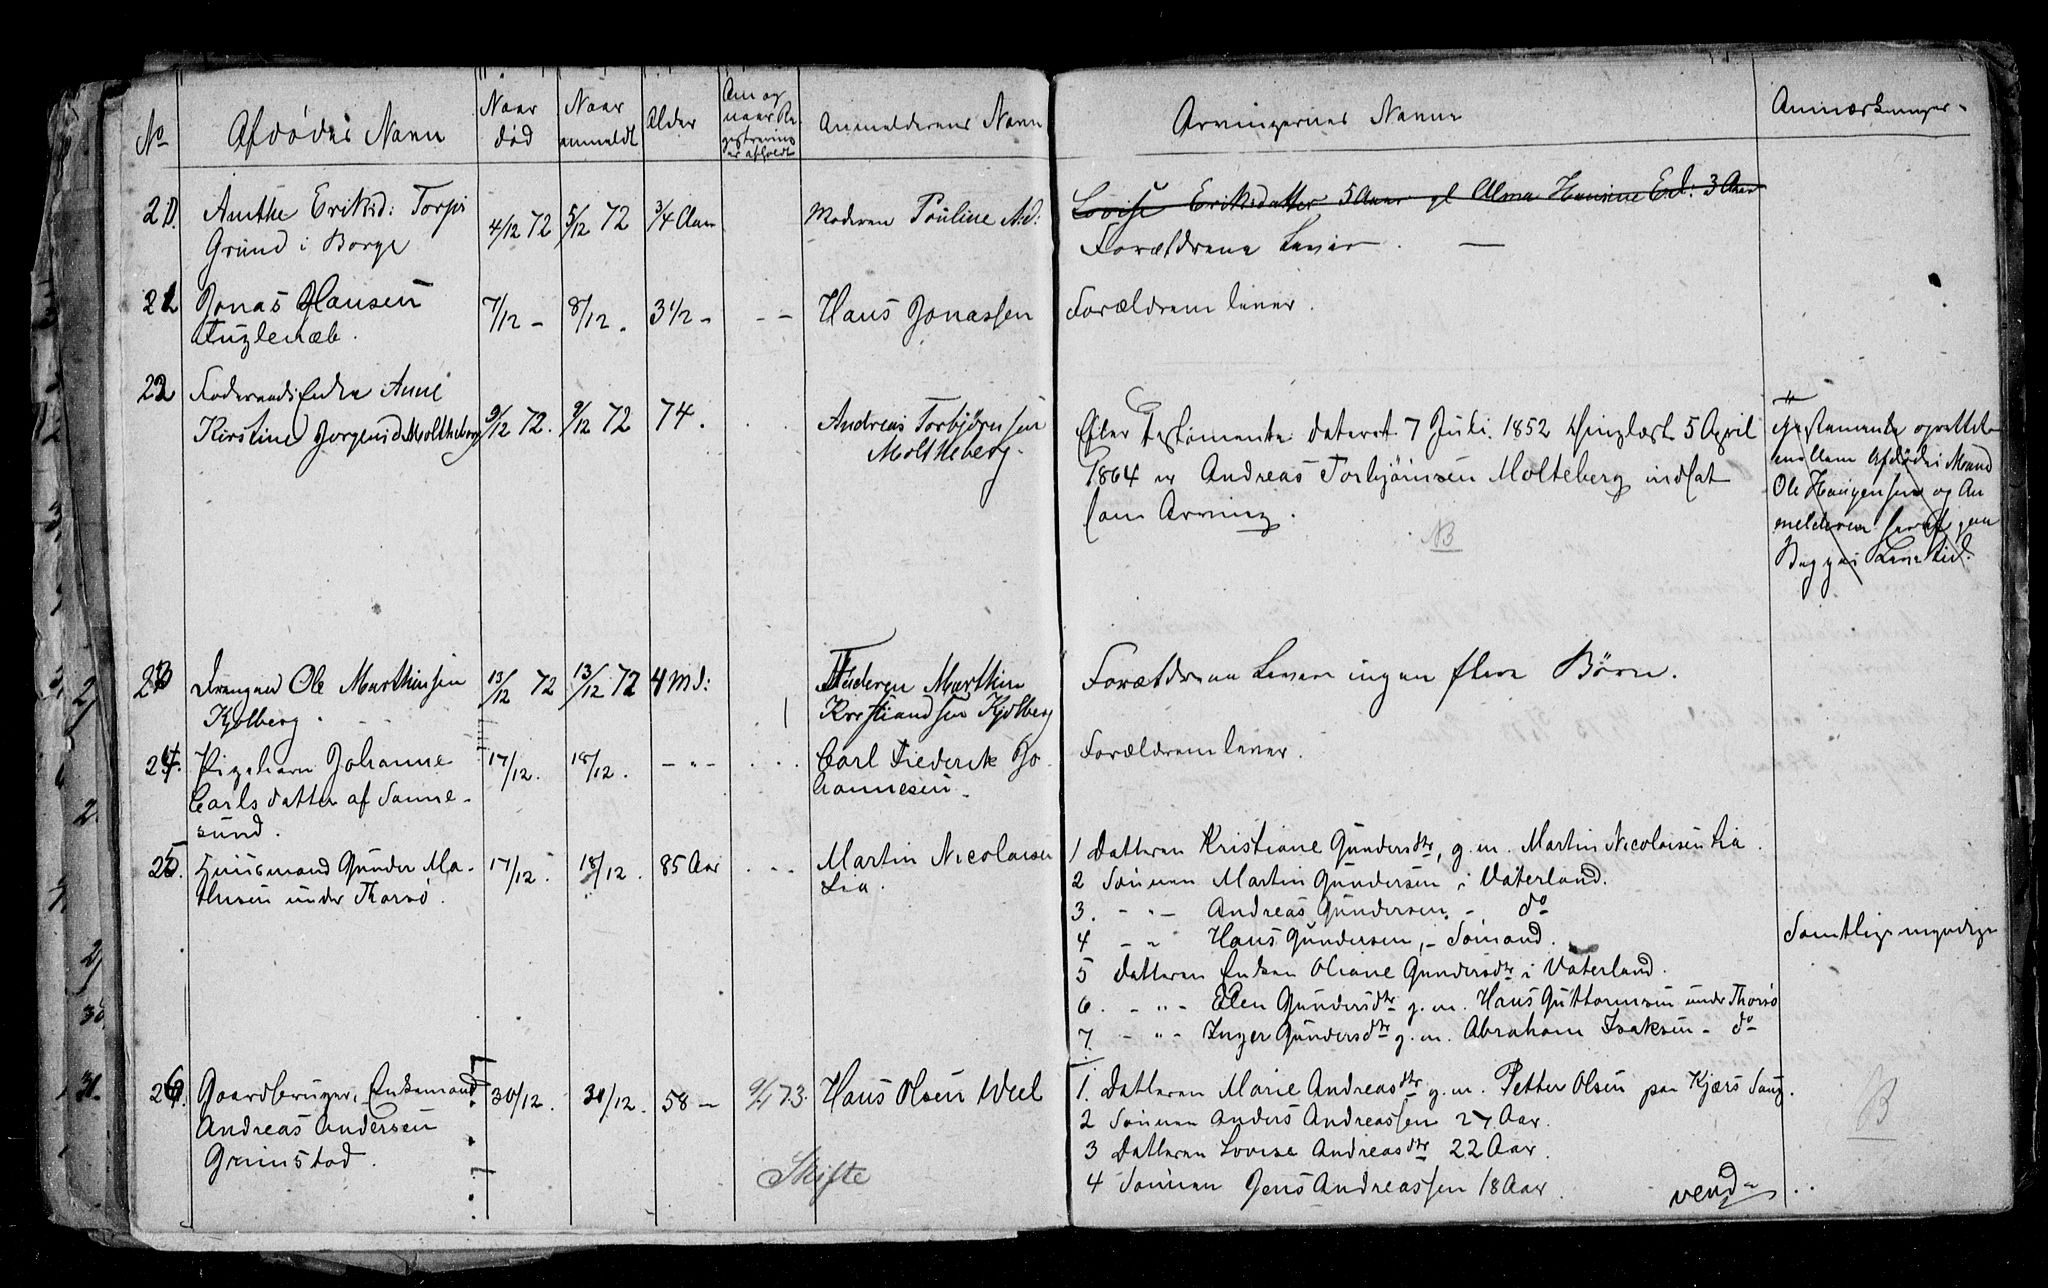 No
Afdødes Navn
Naar
død
Naar
anmeldt
Alder
Om og
naar Re
gistrering
er afholdt
Anmelderens Navn
Arvingernes Navne
Anmærkninger
20.
Anthe Eriksd: Torpe
Grund i Borge
4/12 72
5/12 72
3/4 Aar
Moderen Pouline Ad:
Lovise Eriksdatter 5 Aar Alma Hansine Erd: 3 Aar
Forældrene Lever. —
21
Jonas Hansen
Fuglenæb.
7/12 –
8/12.
3 1/2 –
Hans Jonassen
Forældrene lever.
22
Føderaadsenke Anne
Kirstine Jørgensd Moltheberg
9/12 72.
9/12 72
74.
Andreas Torbjørnsen
Moltheberg.
Efter Testamente dateret 7 Juli 1852 thinglæst 5 April
1864 er Andreas Torbjørnsen Molteberg indsat
som Arving.
NB
Testamente oprettet
mellem Afdødes Mand
Ole Haagensen og An
melderen
Begges Levetid.
23
Drengen Ole Marthinsen
Kjølberg.
13/12 72
13/12 72
4 Md:
Faderen Marthin
Kristiandsen Kjølberg
Forældrene Lever ingen flere Børn.
24.
Pigebarn Johanne
Carlsdatter af Sanne-
sund.
17/12.
18/12.
– " –
Carl Frederik Jo
hannesen
Forældrene lever.
25.
Huusmand Gunder Ma-
thisen under Thorsø.
17/12.
18/12.
85 Aar
Martin Nicolaisen
Lia.
1 Datteren Kristiane Gundersdtr, g. m. Martin Nicolaisen Lia.
2 Sønnen Martin Gundersen i Vaterland.
3. – " – Andreas Gundersen – do
4 – " Hans Gundersen, – Sømand.
5 Datteren Enken Oliane Gundersdtr i Vaterland.
6. – " – Elen Gundersdtr g. m. Hans Guttormsen under Thorsø
7. – " – Inger Gundersdtr g. m. Abraham Isaksen – do
Samtlige myndige
26.
Gaardbruger, Enkemand
Andreas Andersen
Grimstad.
30/12.
30/12.
58 –
9/1 73.
Hans Olsen Weel
Skifte
1. Datteren Marie Andreasdtr g. m. Petter Olsen paa Kjærs Saug.
2 Sønnen Anders Andreassen 27 Aar.
3 Datteren Lovise Andreasdtr 22 Aar.
4 Sønnen Jens Andreassen 18 Aar.
vend
B